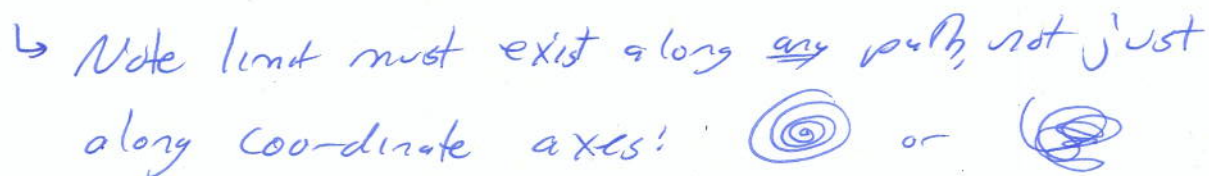 ↳ Note limit must exist along any path, not just
along coordinate axes: or